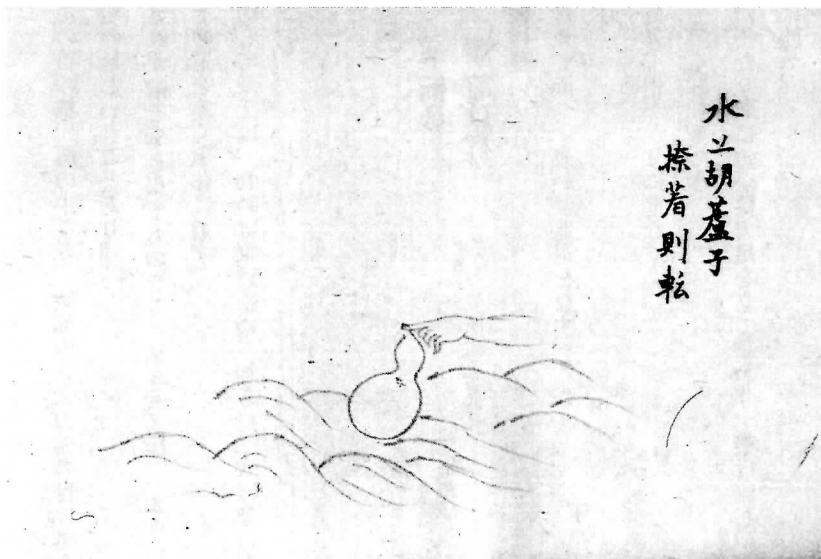 水上胡蘆子
捺着則転